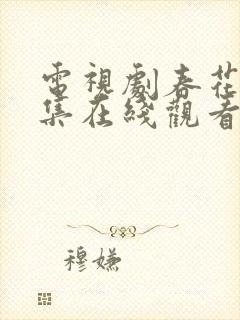 電視劇春花
集在綫觀看
穆嫌